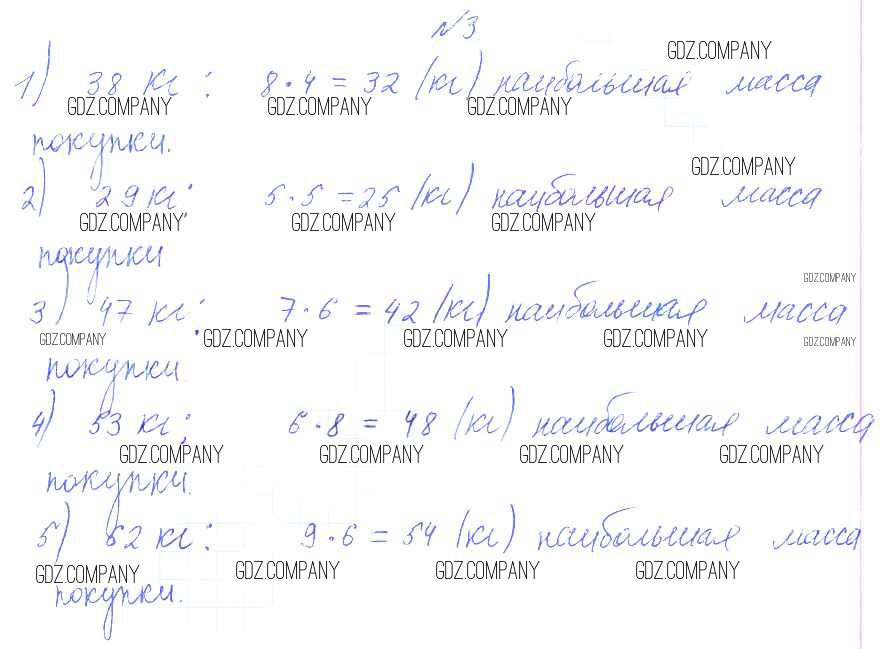 №3
GDZ.COMPANY
1) 38 кг: 8·4 = 32 (кг) наибольшая масса
GDZ.COMPANY GDZ.COMPANY GDZ.COMPANY
покупки.
GDZ.COMPANY
2) 29 кг: 5·5 = 25 (кг) наибольшая масса
GDZ.COMPANY GDZ.COMPANY GDZ.COMPANY
покупки
GDZ.COMPANY
3) 47 кг: 7·6 = 42 (кг) наибольшая масса
GDZ.COMPANY GDZ.COMPANY GDZ.COMPANY GDZ.COMPANY GDZ.COMPANY
покупки
4) 53 кг: 6·8 = 48 (кг) наибольшая масса
GDZ.COMPANY GDZ.COMPANY GDZ.COMPANY GDZ.COMPANY
покупки.
5) 62 кг: 9·6 = 54 (кг) наибольшая масса
GDZ.COMPANY GDZ.COMPANY GDZ.COMPANY GDZ.COMPANY
покупки.